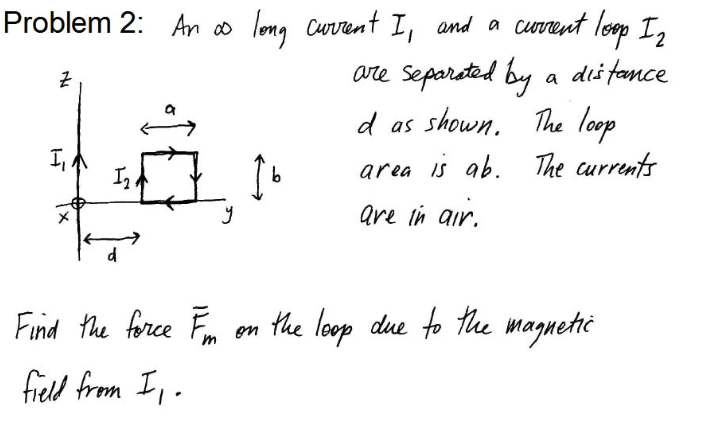 Problem 2: An ∞ long current I₁ and a current loop I₂
are separated by a distance
d as shown. The loop
area is ab. The currents
are in air.
z
a
I₁
I₂
b
x
y
d
Find the force F̄ₘ on the loop due to the magnetic
field from I₁.